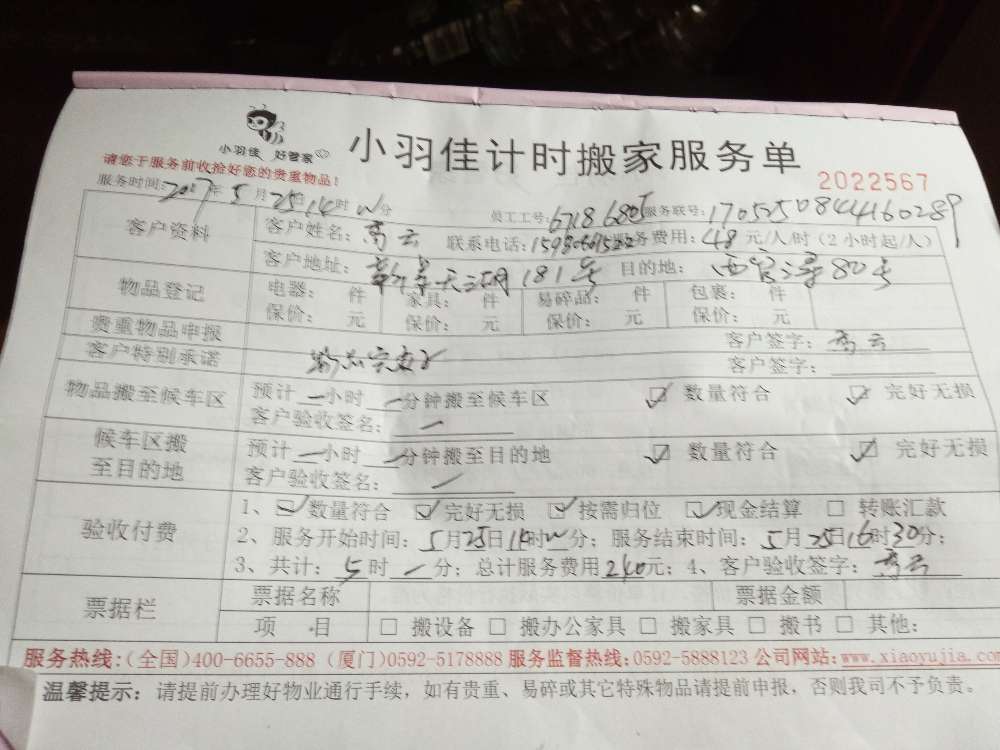 小羽佳 好管家
小羽佳计时搬家服务单
请您于服务前收拾好您的贵重物品！
2022567
服务时间：2017年5月25日14时 分
员工工号：6718 6805 服务联号：17052508444160289
客户资料 客户姓名：高云 联系电话： 服务费用：48元/人/时（2小时起/人）
客户地址： 天湖181号 目的地： 80号
物品登记 电器： 件 家具： 件 易碎品： 件 包裹： 件
保价： 元 保价： 元 保价： 元 保价： 元
贵重物品申报 客户签字：高云
客户特别承诺 物品完好 客户签字：
物品搬至候车区 预计一小时一分钟搬至候车区 ☑ 数量符合 ☑ 完好无损
客户验收签名：一
候车区搬至目的地 预计一小时一分钟搬至目的地 ☑ 数量符合 ☑ 完好无损
客户验收签名：一
验收付费 1、☑数量符合 ☑完好无损 ☑按需归位 ☑现金结算 □ 转账汇款
2、服务开始时间：5月25日14时 分；服务结束时间：5月25日16时30分；
3、共计：5时一分；总计服务费用240元；4、客户验收签字：高云
票据栏 票据名称 票据金额
项 目 □ 搬设备 □ 搬办公家具 □ 搬家具 □ 搬书 □ 其他：
服务热线：(全国)400-6655-888 (厦门)0592-5178888 服务监督热线：0592-5888123 公司网站：www.xiaoyujia.com
温馨提示：请提前办理好物业通行手续，如有贵重、易碎或其它特殊物品请提前申报，否则我司不予负责。